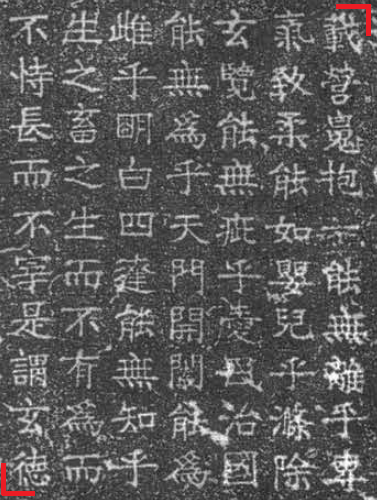 載營魄抱一能無離乎專
氣致柔能如嬰兒乎滌除
玄覽能無疵乎愛民治國
能無為乎天門開闔能為
雌乎明白四達能無知乎
生之畜之生而不有為而
不恃長而不宰是謂玄德